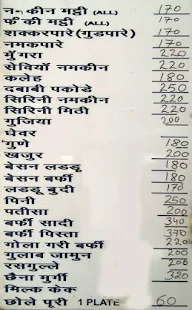 नमकीन मट्ठी (ALL) 170
फीकी मट्ठी (ALL) 170
शक्करपारे (गुडपारे) 170
नमकपारे 170
मुँगरा 220
सेवियाँ नमकीन 220
कलेह 180
दबाबी पकोडे 250
सिरिनी नमकीन 220
सिरिनी मिठी 220
गुजिया 200
घेवर
गुणे 180
खजुर 200
बेसन लडडू 180
बेसन बर्फी 180
लडडू बुदी 170
पिनी 250
पतीसा 200
बर्फी सादी 340
बर्फी पिस्ता 370
गोला गरी बर्फी 220
गुलाब जामुन 200
रसगुल्ले 200
छैना मुर्गी 320
मिल्क केक
छोले पूरी 1 PLATE 60